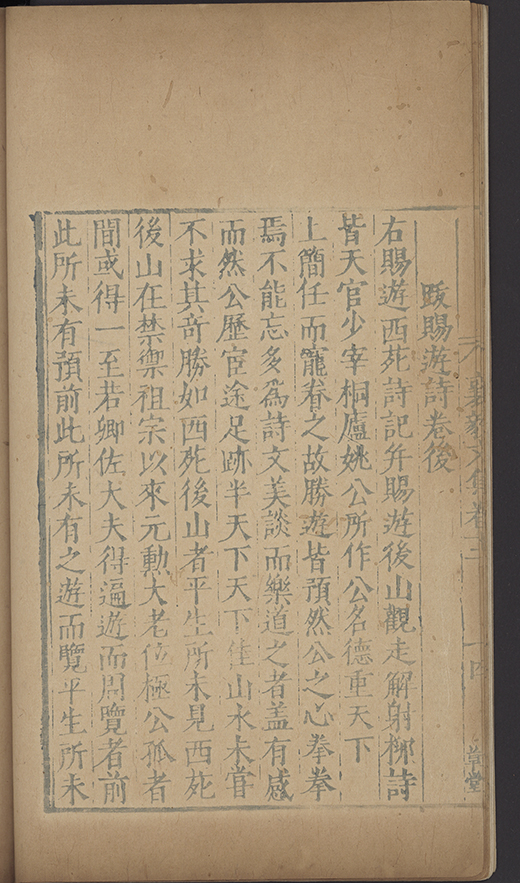 襄毅文集卷三
十四
草堂
跋賜遊詩卷後
右賜遊西苑詩記并賜遊後山觀走解射柳詩
皆天官少宰桐廬姚公所作公名德重天下
上簡任而寵眷之故勝遊皆預然公之心拳拳
焉不能忘多為詩文美談而樂道之者盖有感
而然公歷宦途足跡半天下天下佳山水未嘗
不求其奇勝如西苑後山者平生所未見西苑
後山在禁禦祖宗以來元勳大老位極公孤者
間或得一至若卿佐大夫得遍遊而周覽者前
此所未有預前此所未有之遊而覽平生所未